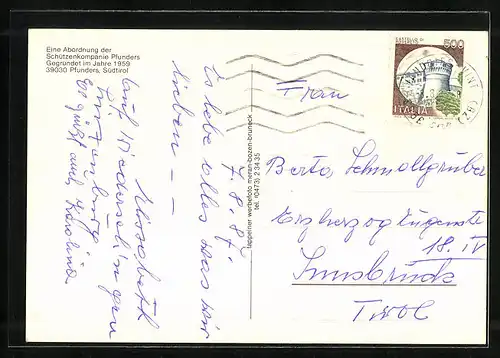 Eine Abordnung der
Schützenkompanie Pfunders
Gegründet im Jahre 1959
39030 Pfunders, Südtirol
7. 8. 87.
Es lebe alles was wir
lieben – –
auf Wiedersehn
Es grüßt euch
tappeiner werbefoto meran-bozen-bruneck
tel. (0473) 2 34 35
500
ITALIA
Frau
Berta Schmallgruber
Erzherzog Eugenstr
18. IV
Innsbruck
Tirol